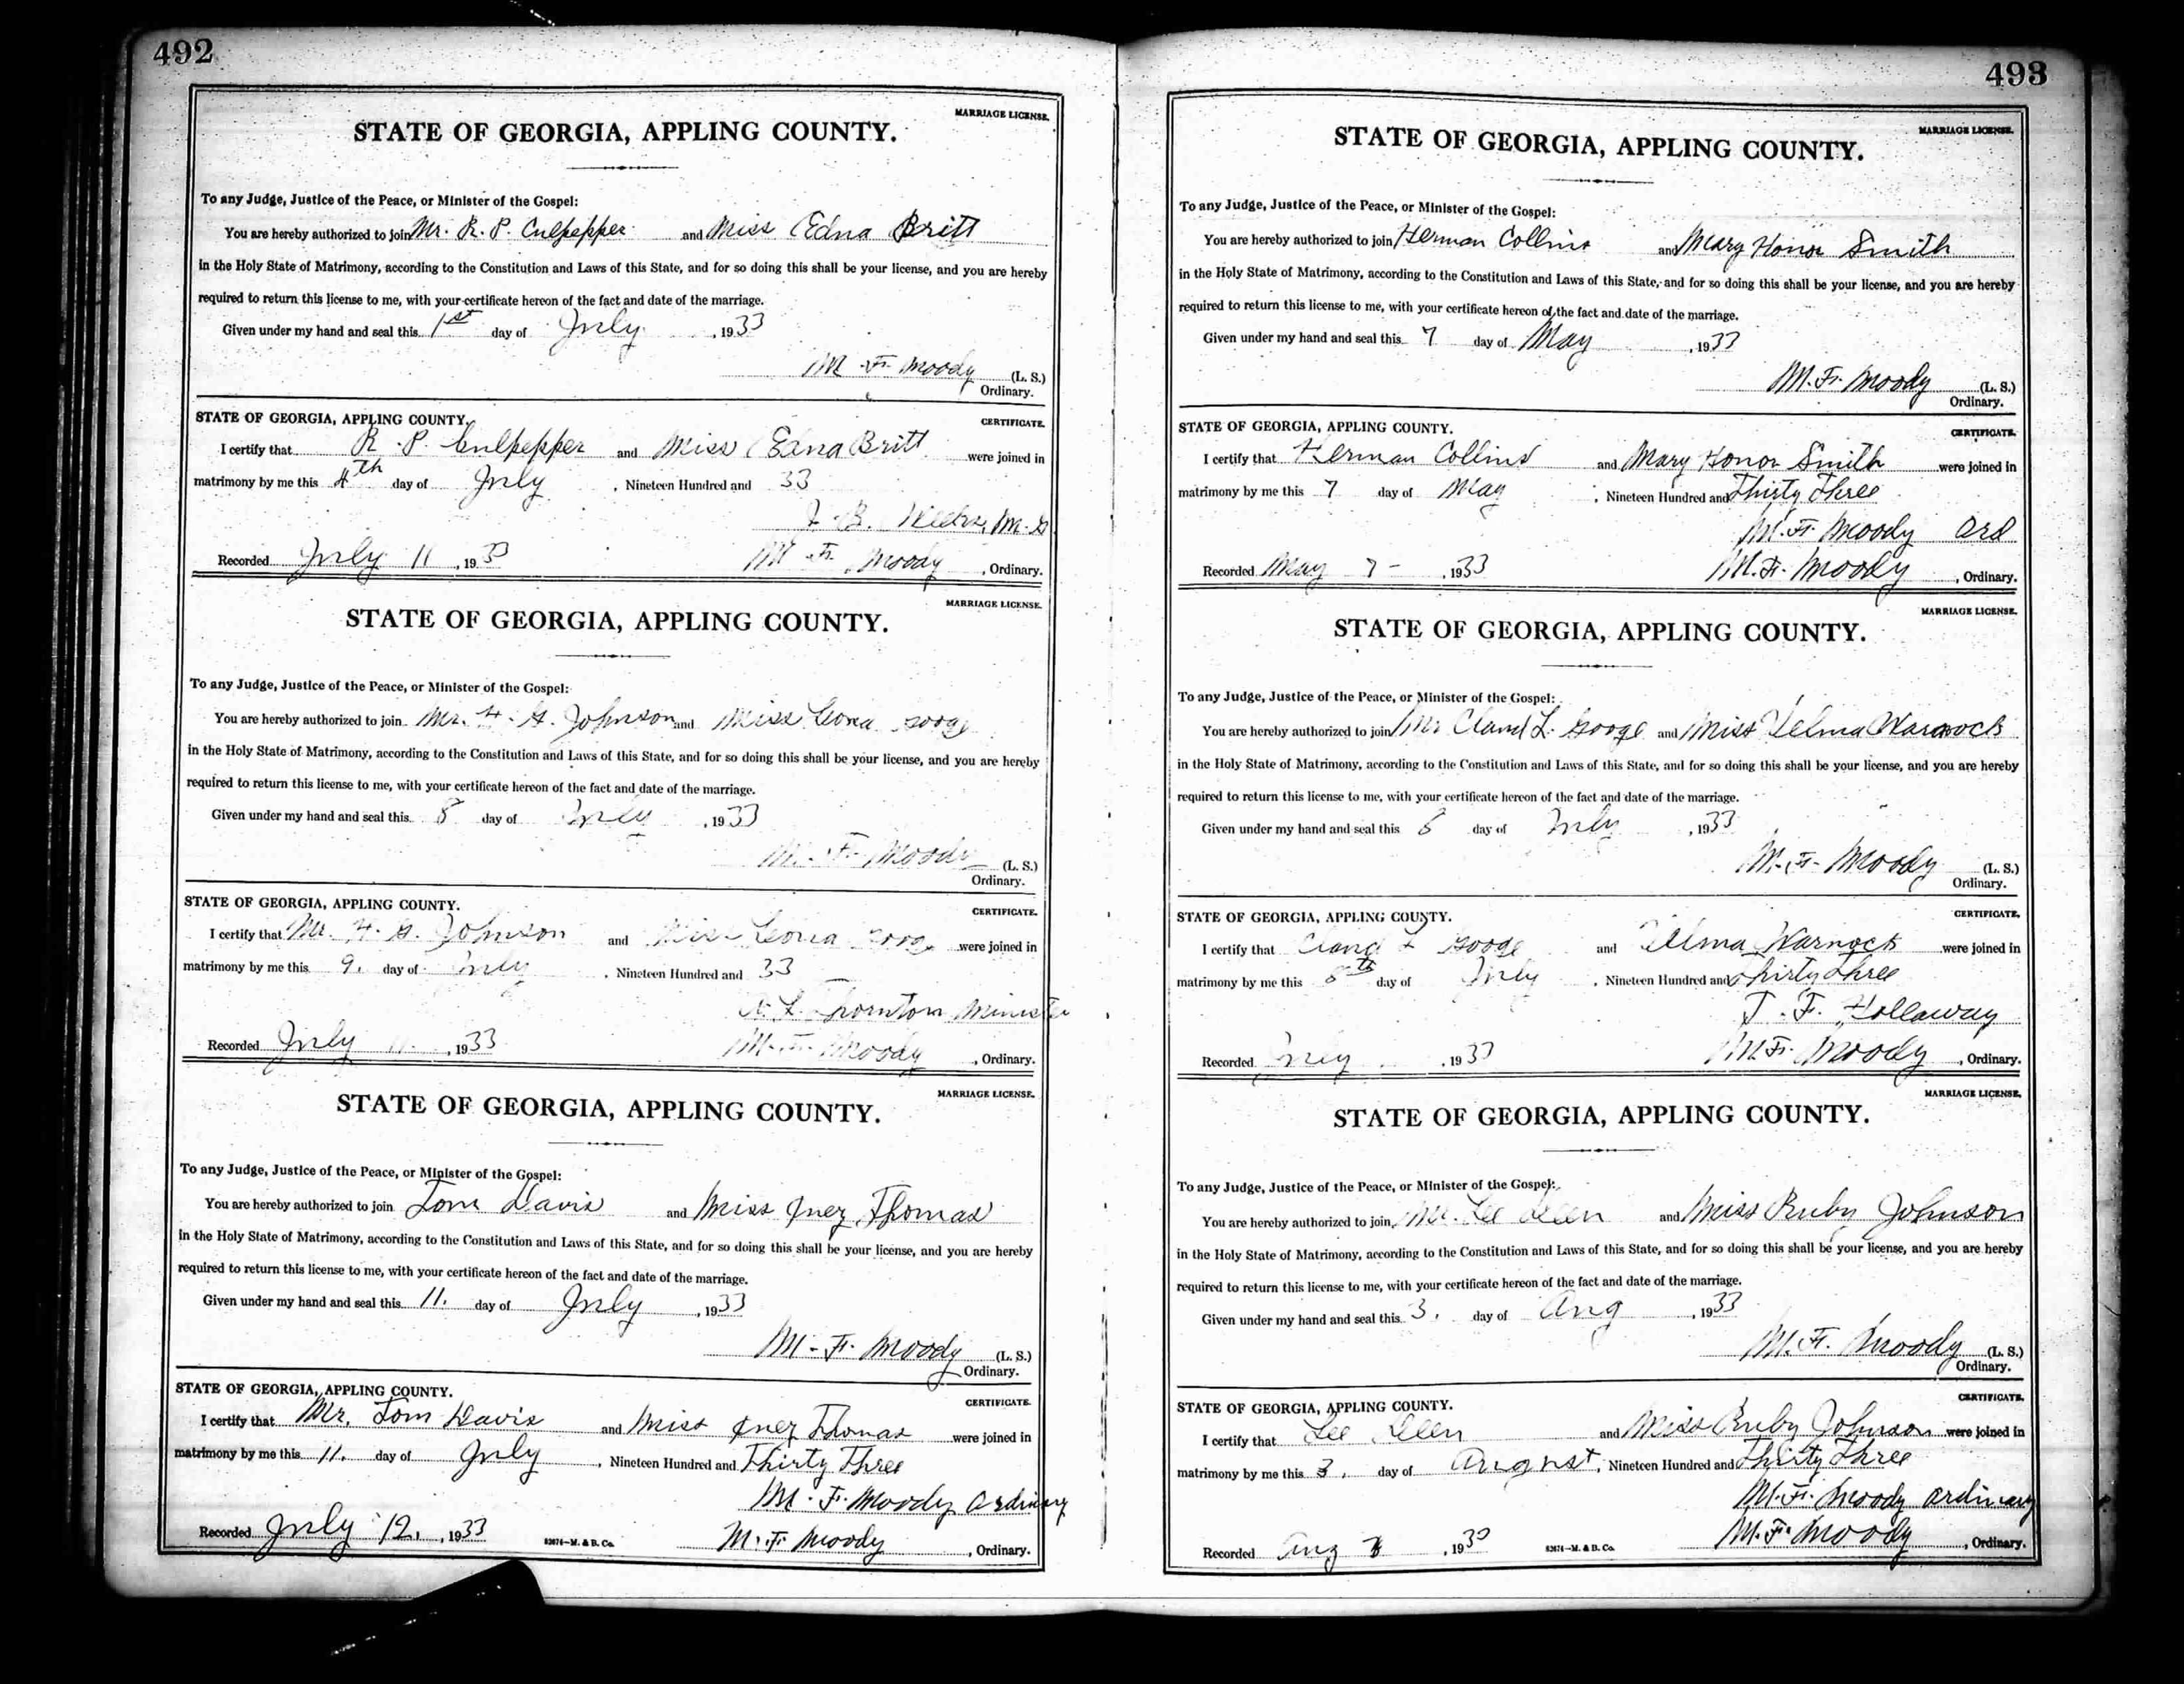 492
MARRIAGE LICENSE.
STATE OF GEORGIA, APPLING COUNTY.
To any Judge, Justice of the Peace, or Minister of the Gospel:
You are hereby authorized to join Mr. R. P. Culpepper and Miss Edna Britt
in the Holy State of Matrimony, according to the Constitution and Laws of this State, and for so doing this shall be your license, and you are hereby
required to return this license to me, with your certificate hereon of the fact and date of the marriage.
Given under my hand and seal this 1st day of July, 1933
M. F. Moody (L. S.)
Ordinary.
STATE OF GEORGIA, APPLING COUNTY.
CERTIFICATE.
I certify that R. P. Culpepper and Miss Edna Britt were joined in
matrimony by me this 4th day of July, Nineteen Hundred and 33
B. M. G
Recorded July 11, 1933 M. F. Moody, Ordinary.
MARRIAGE LICENSE.
STATE OF GEORGIA, APPLING COUNTY.
To any Judge, Justice of the Peace, or Minister of the Gospel:
You are hereby authorized to join Mr. H. G. Johnson and Miss Googe
in the Holy State of Matrimony, according to the Constitution and Laws of this State, and for so doing this shall be your license, and you are hereby
required to return this license to me, with your certificate hereon of the fact and date of the marriage.
Given under my hand and seal this 8 day of July, 1933
M. F. Moody (L. S.)
Ordinary.
STATE OF GEORGIA, APPLING COUNTY.
CERTIFICATE.
I certify that Mr. H. G. Johnson and Miss Googe were joined in
matrimony by me this 9. day of July, Nineteen Hundred and 33
L. Thornton Minister
Recorded July 11, 1933 M. F. Moody, Ordinary.
MARRIAGE LICENSE.
STATE OF GEORGIA, APPLING COUNTY.
To any Judge, Justice of the Peace, or Minister of the Gospel:
You are hereby authorized to join Tom Davis and Miss Inez Thomas
in the Holy State of Matrimony, according to the Constitution and Laws of this State, and for so doing this shall be your license, and you are hereby
required to return this license to me, with your certificate hereon of the fact and date of the marriage.
Given under my hand and seal this 11. day of July, 1933
M. F. Moody (L. S.)
Ordinary.
STATE OF GEORGIA, APPLING COUNTY.
CERTIFICATE.
I certify that Mr. Tom Davis and Miss Inez Thomas were joined in
matrimony by me this 11. day of July, Nineteen Hundred and Thirty Three
M. F. Moody Ordinary
Recorded July 12, 1933 82674—M. & B. Co. M. F. Moody, Ordinary.
493
MARRIAGE LICENSE.
STATE OF GEORGIA, APPLING COUNTY.
To any Judge, Justice of the Peace, or Minister of the Gospel:
You are hereby authorized to join Herman Collins and Mary Honor Smith
in the Holy State of Matrimony, according to the Constitution and Laws of this State, and for so doing this shall be your license, and you are hereby
required to return this license to me, with your certificate hereon of the fact and date of the marriage.
Given under my hand and seal this 7 day of May, 1933
M. F. Moody (L. S.)
Ordinary.
STATE OF GEORGIA, APPLING COUNTY.
CERTIFICATE.
I certify that Herman Collins and Mary Honor Smith were joined in
matrimony by me this 7 day of May, Nineteen Hundred and Thirty Three
M. F. Moody Ord
Recorded May 7 -, 1933 M. F. Moody, Ordinary.
MARRIAGE LICENSE.
STATE OF GEORGIA, APPLING COUNTY.
To any Judge, Justice of the Peace, or Minister of the Gospel:
You are hereby authorized to join Mr Claud L. Googe and Miss Velma Warnock
in the Holy State of Matrimony, according to the Constitution and Laws of this State, and for so doing this shall be your license, and you are hereby
required to return this license to me, with your certificate hereon of the fact and date of the marriage.
Given under my hand and seal this 8 day of July, 1933
M. F. Moody (L. S.)
Ordinary.
STATE OF GEORGIA, APPLING COUNTY.
CERTIFICATE.
I certify that Claud L Googe and Velma Warnock were joined in
matrimony by me this 8th day of July, Nineteen Hundred and Thirty Three
T. F. Holloway
Recorded July, 1933 M. F. Moody, Ordinary.
MARRIAGE LICENSE.
STATE OF GEORGIA, APPLING COUNTY.
To any Judge, Justice of the Peace, or Minister of the Gospel:
You are hereby authorized to join Mr. Lee and Miss Ruby Johnson
in the Holy State of Matrimony, according to the Constitution and Laws of this State, and for so doing this shall be your license, and you are hereby
required to return this license to me, with your certificate hereon of the fact and date of the marriage.
Given under my hand and seal this 3. day of Aug, 1933
M. F. Moody (L. S.)
Ordinary.
STATE OF GEORGIA, APPLING COUNTY.
CERTIFICATE.
I certify that Lee and Miss Ruby Johnson were joined in
matrimony by me this 3. day of August, Nineteen Hundred and Thirty Three
M. F. Moody Ordinary
Recorded Aug, 1933 82674—M. & B. Co. M. F. Moody, Ordinary.